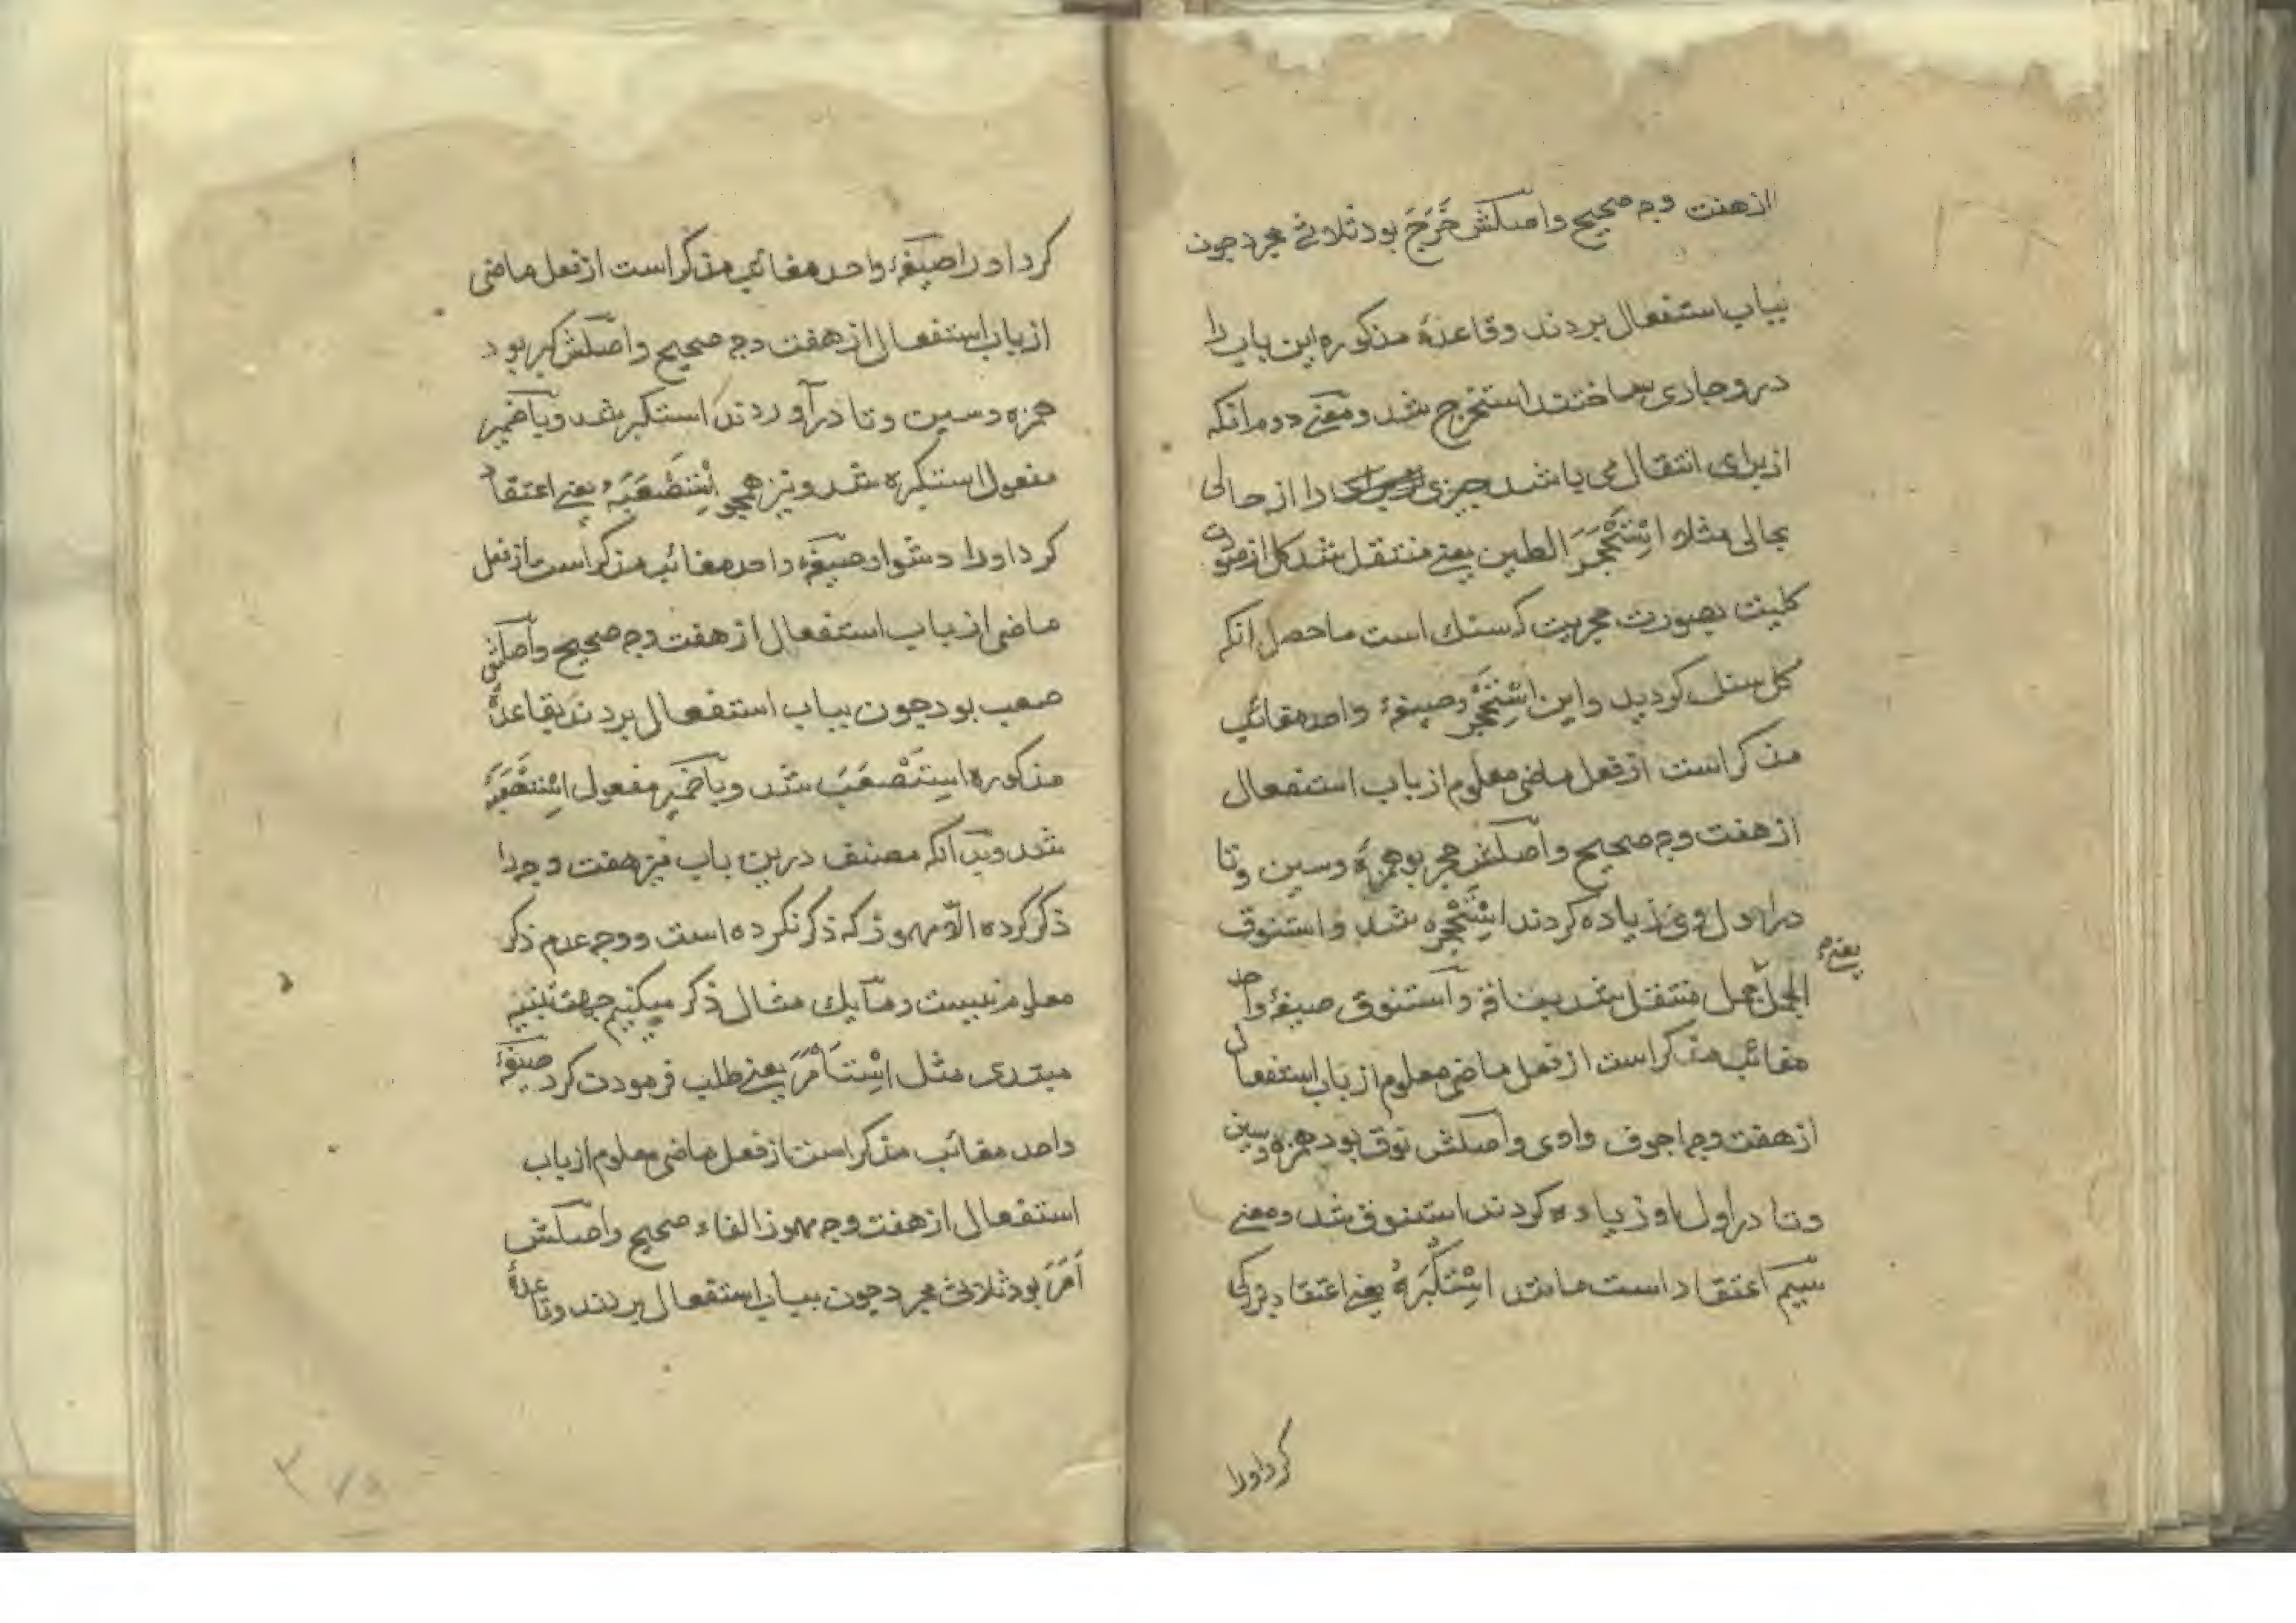 از هفت وجه صحیح و اصلش خَرَجَ بود ثلاثی مجرد چون
بباب استفعال بردند و قاعدهٔ مذکوره این باب را
درو جاری ساختند استخرج شد و معنی دوم آنکه
از برای انتقال می باشد چیزی را از حالی
بحالی مثلا اِسْتَحْجَرَ الطین یعنی منتقل شد کل از
کلینت بصورت حجریت که سنك است ماحصل انکه
کل سنك کردید و این اِسْتَحْجَر صیغهٔ واحد مغائب
مذکر است از فعل ماضی معلوم از باب استفعال
از هفت وجه صحیح و اصلش حجر بود همزه و سین و تا
در اول وی زیاده کردند اِسْتَحْجَره شد و استنوق
یعنی
الجمل جمل منتقل شد بناقة و استنوق صیغهٔ واحد
مغائب مذکر است از فعل ماضی معلوم از باب استفعال
از هفت وجه اجوف واوی و اصلش نوق بود همزه و سین
و تا در اول او زیاده کردند استنوق شد و معنی
سیم اعتقاد است مانند اِسْتَكْبَرَهُ یعنی اعتقاد بزرکی
کرد اورا
کرد اورا صیغهٔ واحد مغائب مذکر است از فعل ماضی
از باب استفعال از هفت وجه صحیح و اصلش کبر بود
همزه و سین و تا در آوردند استکبر شد و با ضمیر
مفعول استکبره شد و نیز همچو اِسْتَصْعَبَهُ یعنی اعتقاد
کرد اورا دشوار صیغهٔ واحد مغائب مذکر است از فعل
ماضی از باب استفعال از هفت وجه صحیح و اصلش
صعب بود چون بباب استفعال بردند بقاعدهٔ
مذکوره اِسْتَصْعَبَ شد و با ضمیر مفعول اِسْتَصْعَبَهُ
شد و بدآنکه مصنف درین باب نیز هفت وجه را
ذکر کرده الّا مهموز که ذکر نکرده است و وجه عدم ذکر
معلوم نیست و ما یك مثال ذکر میکنیم جهت
مبتدی مثل اِسْتَأْمَرَ یعنی طلب فرمودن کرد صیغهٔ
واحد مغائب مذکر است از فعل ماضی معلوم از باب
استفعال از هفت وجه مهموز الفاء صحیح و اصلش
اَمَرَ بود ثلاثی مجرد چون بباب استفعال بردند و قاعدهٔ